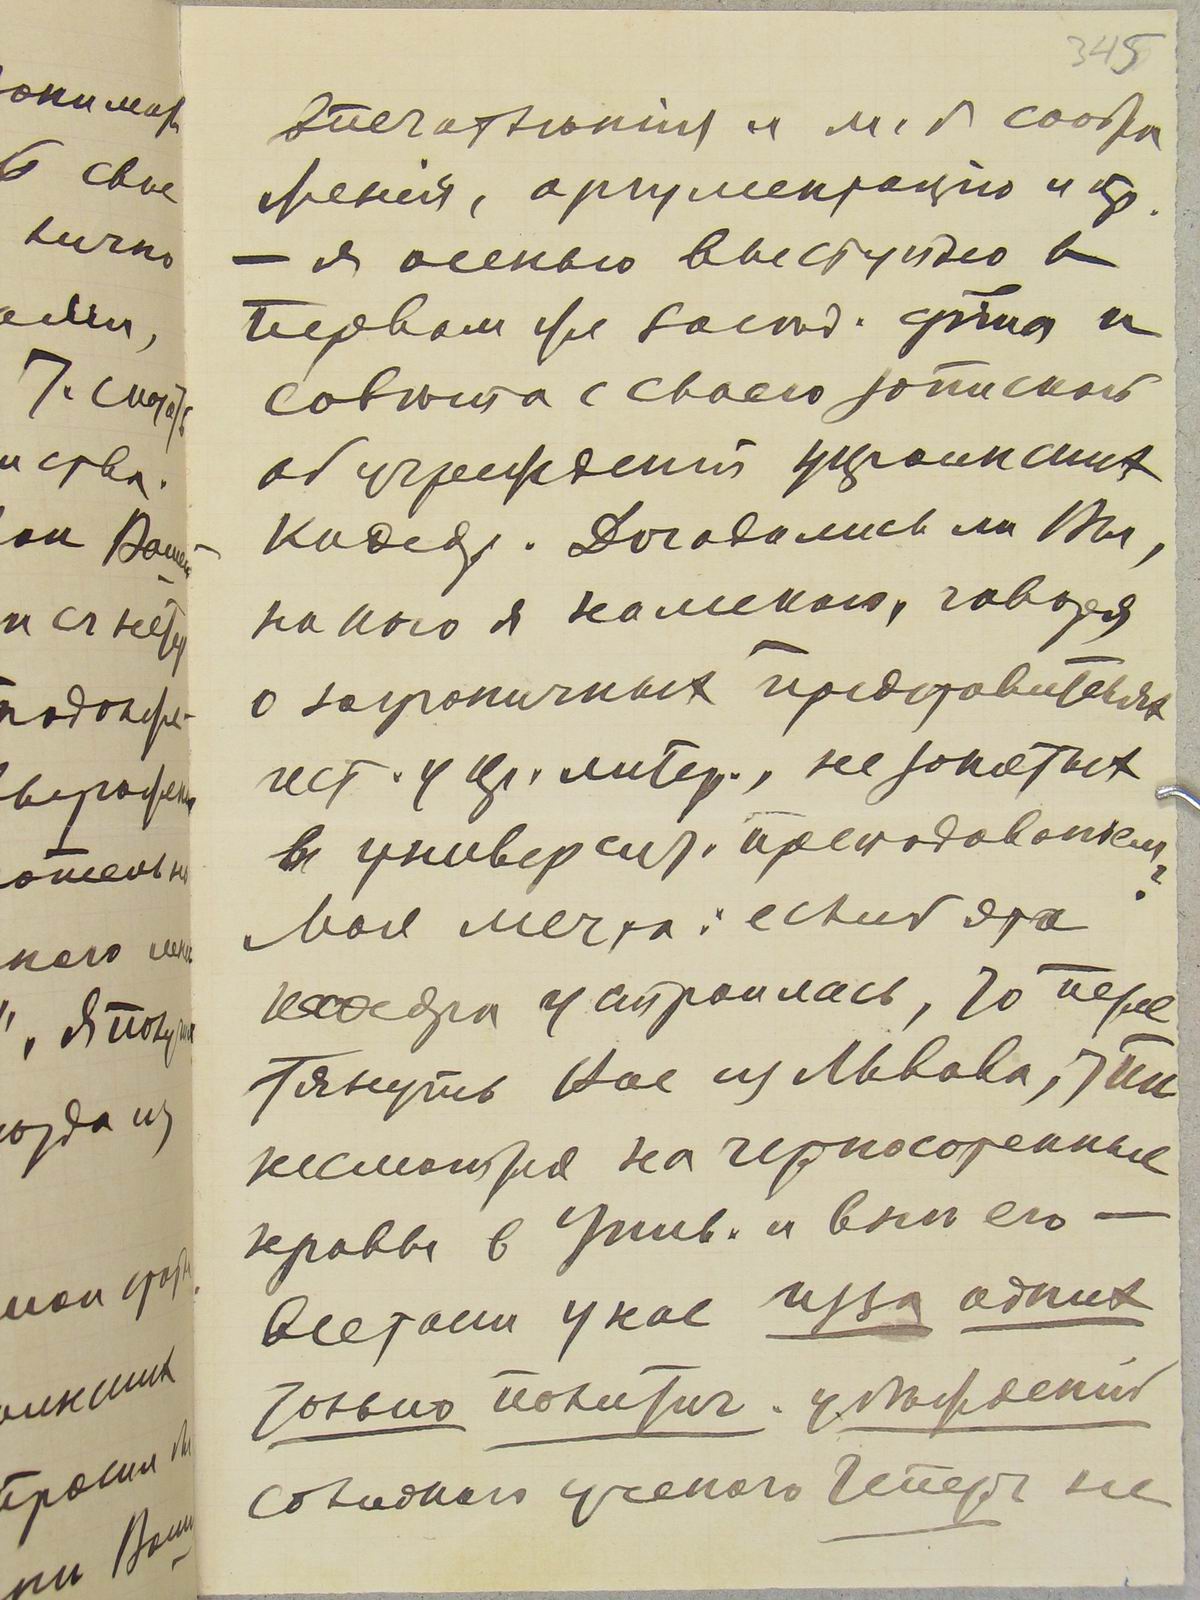 345
впечатлѣнія и м. б. сообра
женій, аргументацію и пр.
— я осенью выступлю в
первом же засѣд. ф-та и
совѣта с своею запиской
об учрежденіи украинских
кафедр. Догадались ли Вы,
на кого я намекаю, говоря
о заграничных представителях
ист. и укр. литер., не занятых
в университ. преподаваніем?
Моя мечта: если б эта
кафедра устроилась, то пере
тянуть Вас из Львова, ибо
несмотря на черносотенные
нравы в Унив. и внѣ его —
все таки у нас из за одних
только политич. убѣжденій
солидного ученого теперь не
онимая
свое
лично
ями,
7. сказать
ства.
Вашей
подозрѣ-
ского
", я получил
когда из
просил бы
при Ваши